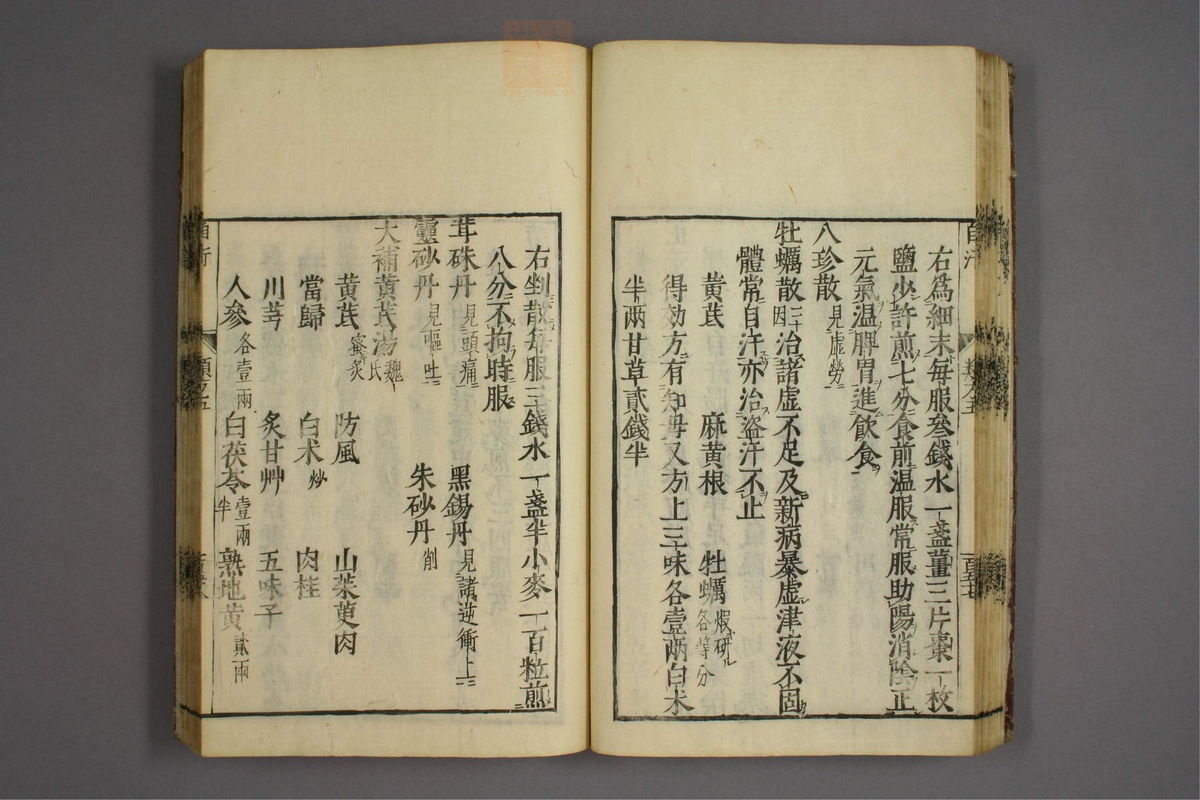 右爲細末毎服參錢水一盞薑三片棗一枚
鹽少許煎七分食前温服常服助陽消陰正
元氣温脾胃進飲食
八珍散見虚勞
牡蠣散三十因治諸虚不足及新病暴虚津液不固
體常自汗亦治盗汗不止
黄芪 麻黄根 牡蠣煆研各等分
得効方有知母又方上三味各壹兩白术
半兩甘草貳錢半
右剉散毎服三錢水一盞半小麥一百粒煎
八分不拘時服
茸硃丹見頭痛 黑錫丹見諸逆衝上
靈砂丹見嘔吐 朱砂丹削
大補黄芪湯魏氏
黄芪蜜炙 防風 山茱萸肉
當歸 白术炒 肉桂
川芎 炙甘艸 五味子
人參各壹兩 白茯苓壹兩半 熟地黄貳兩